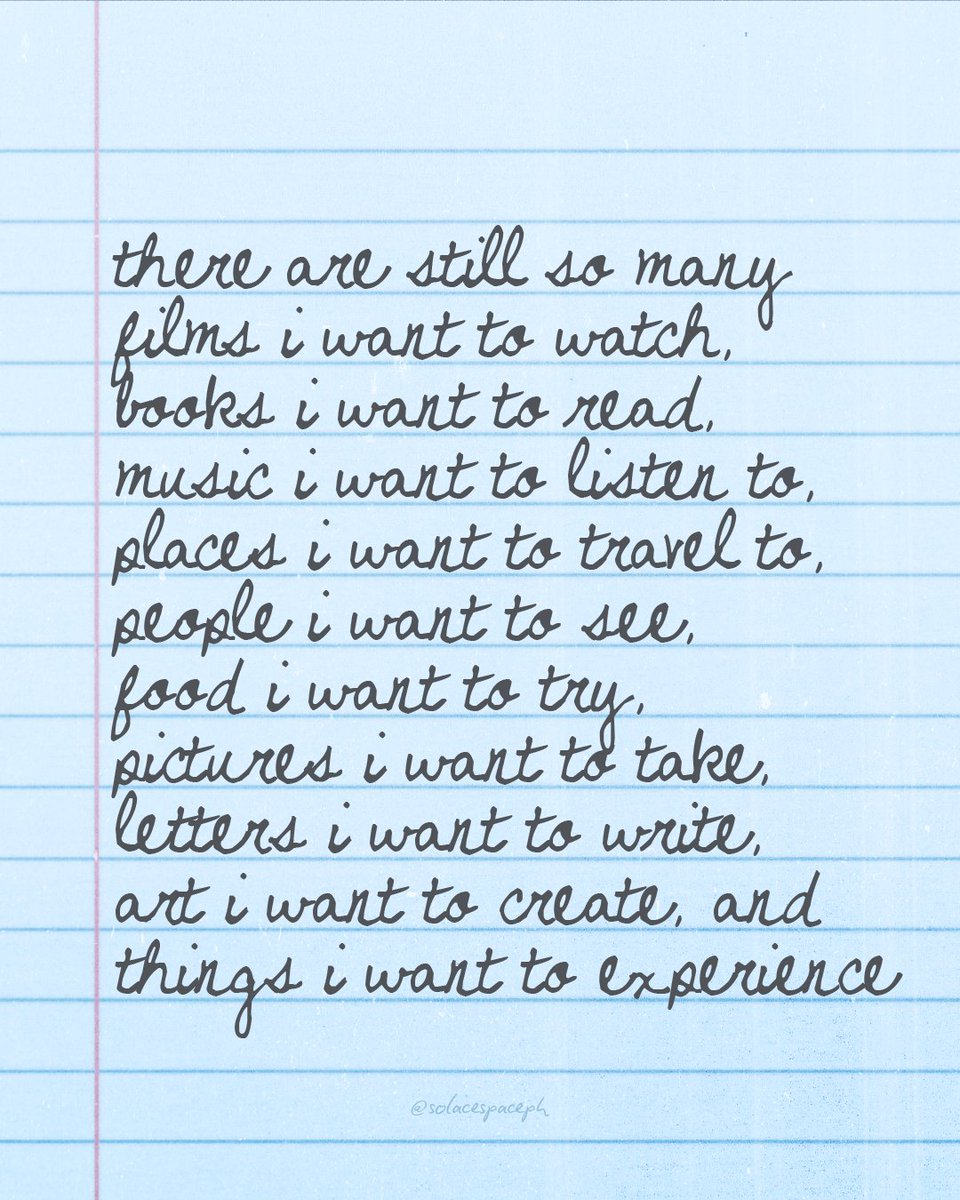 there are still so many
films i want to watch,
books i want to read,
music i want to listen to,
places i want to travel to,
people i want to see,
food i want to try,
pictures i want to take,
letters i want to write,
art i want to create, and
things i want to experience
@solacespaceph